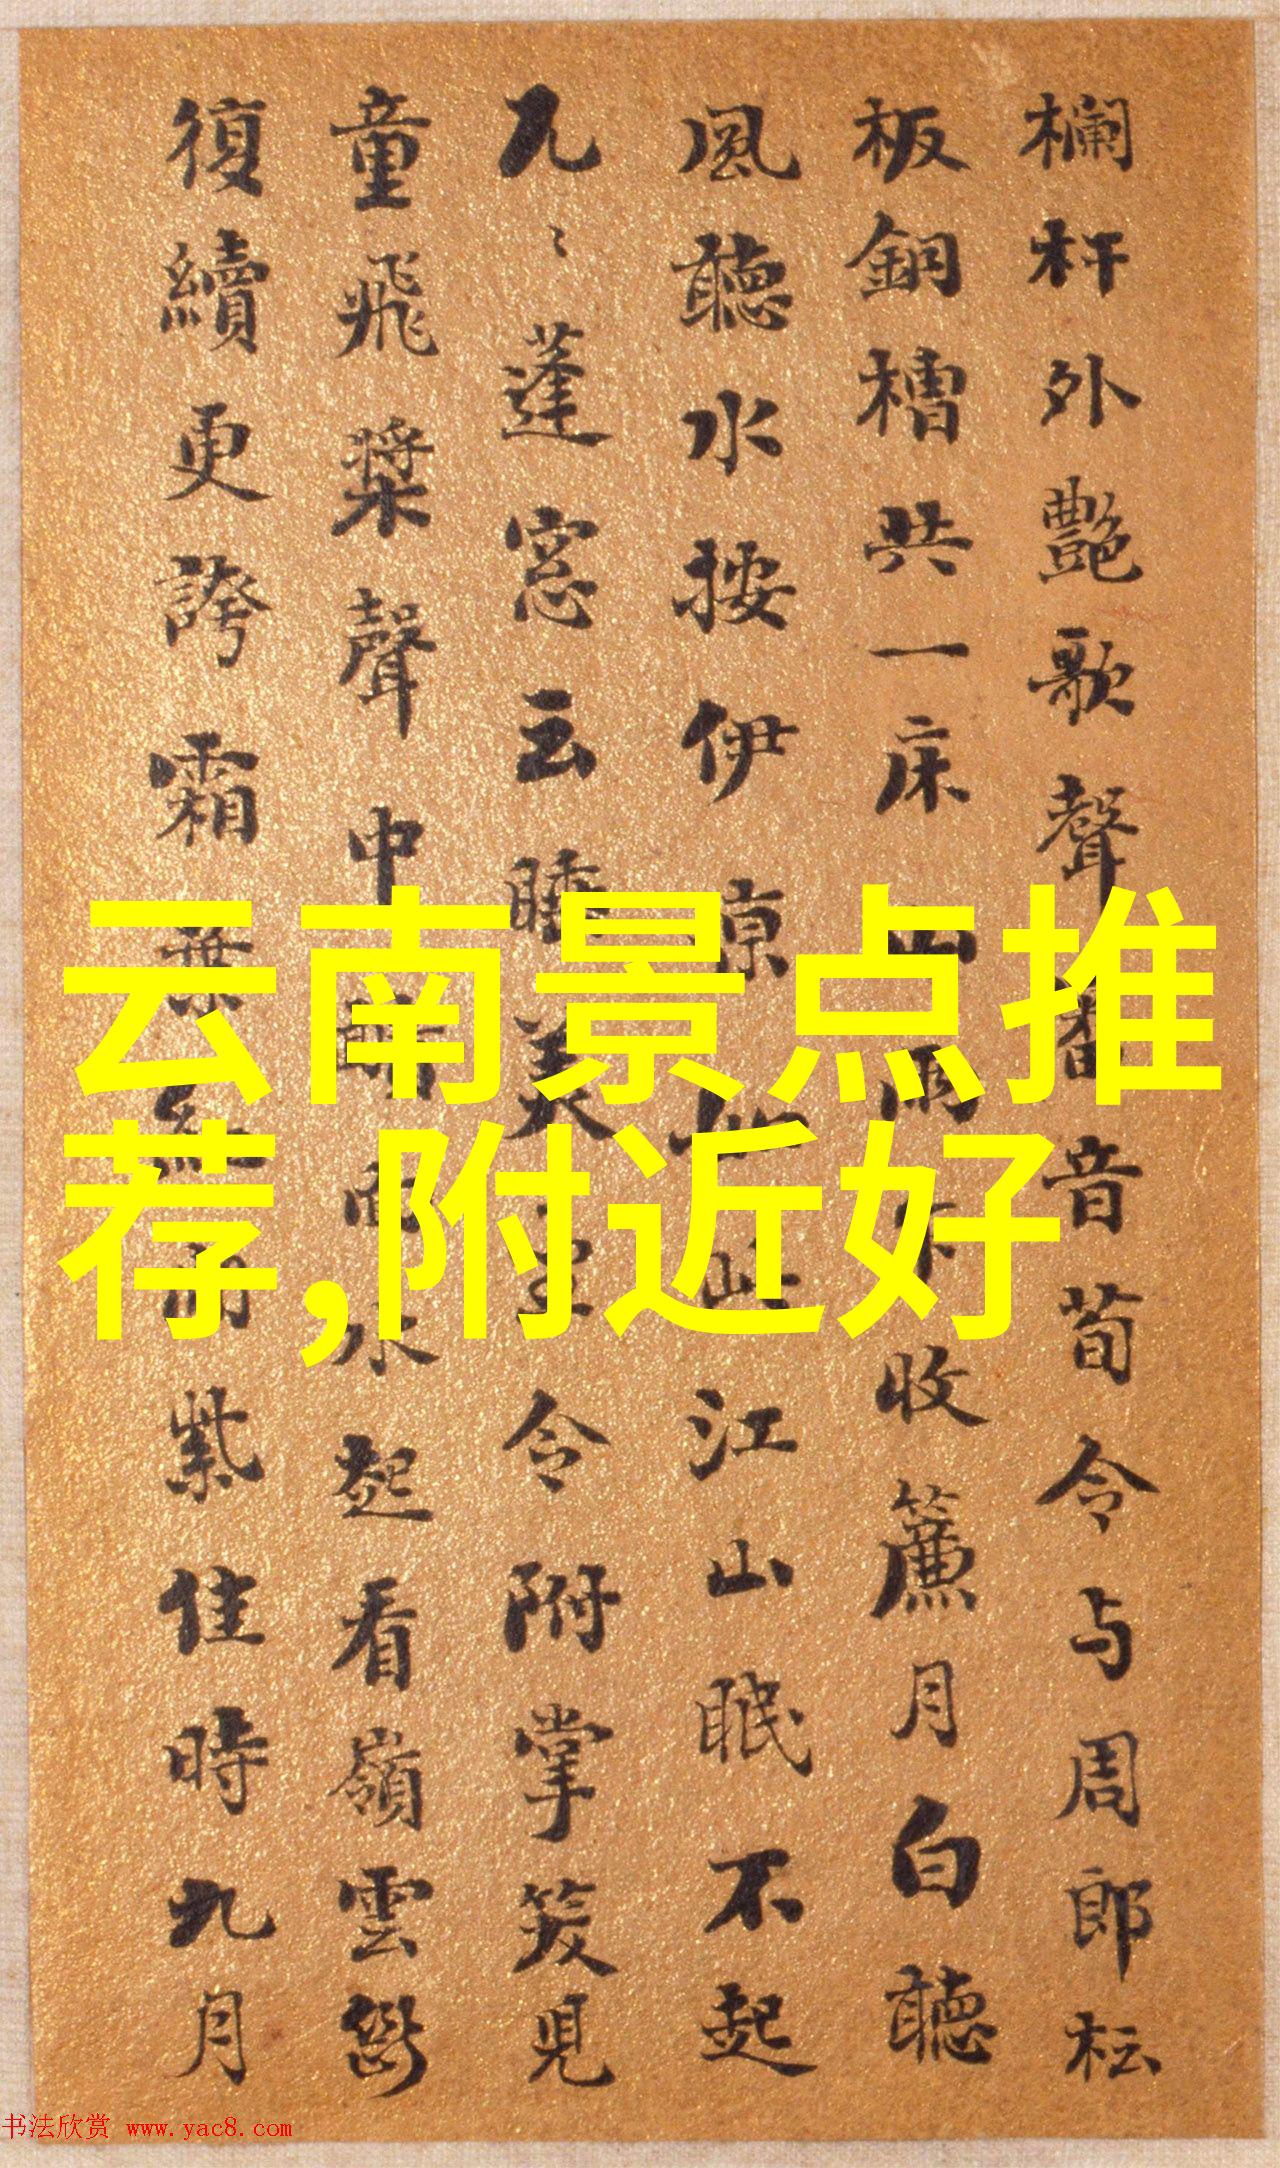 欄杆外艷歌聲香音荀令与周郎松
板銅槽共一床山雨收簾月白聽
風聽水按伊涼如此江山眠不起
凡〻蓬窓云睡美令附掌笑見
童飛槳聲中面水起看嶺雲
復續更誇霜葉紅紫佳時九月
云南景点推
荐,附近好
书法欣赏 www.yac8.com